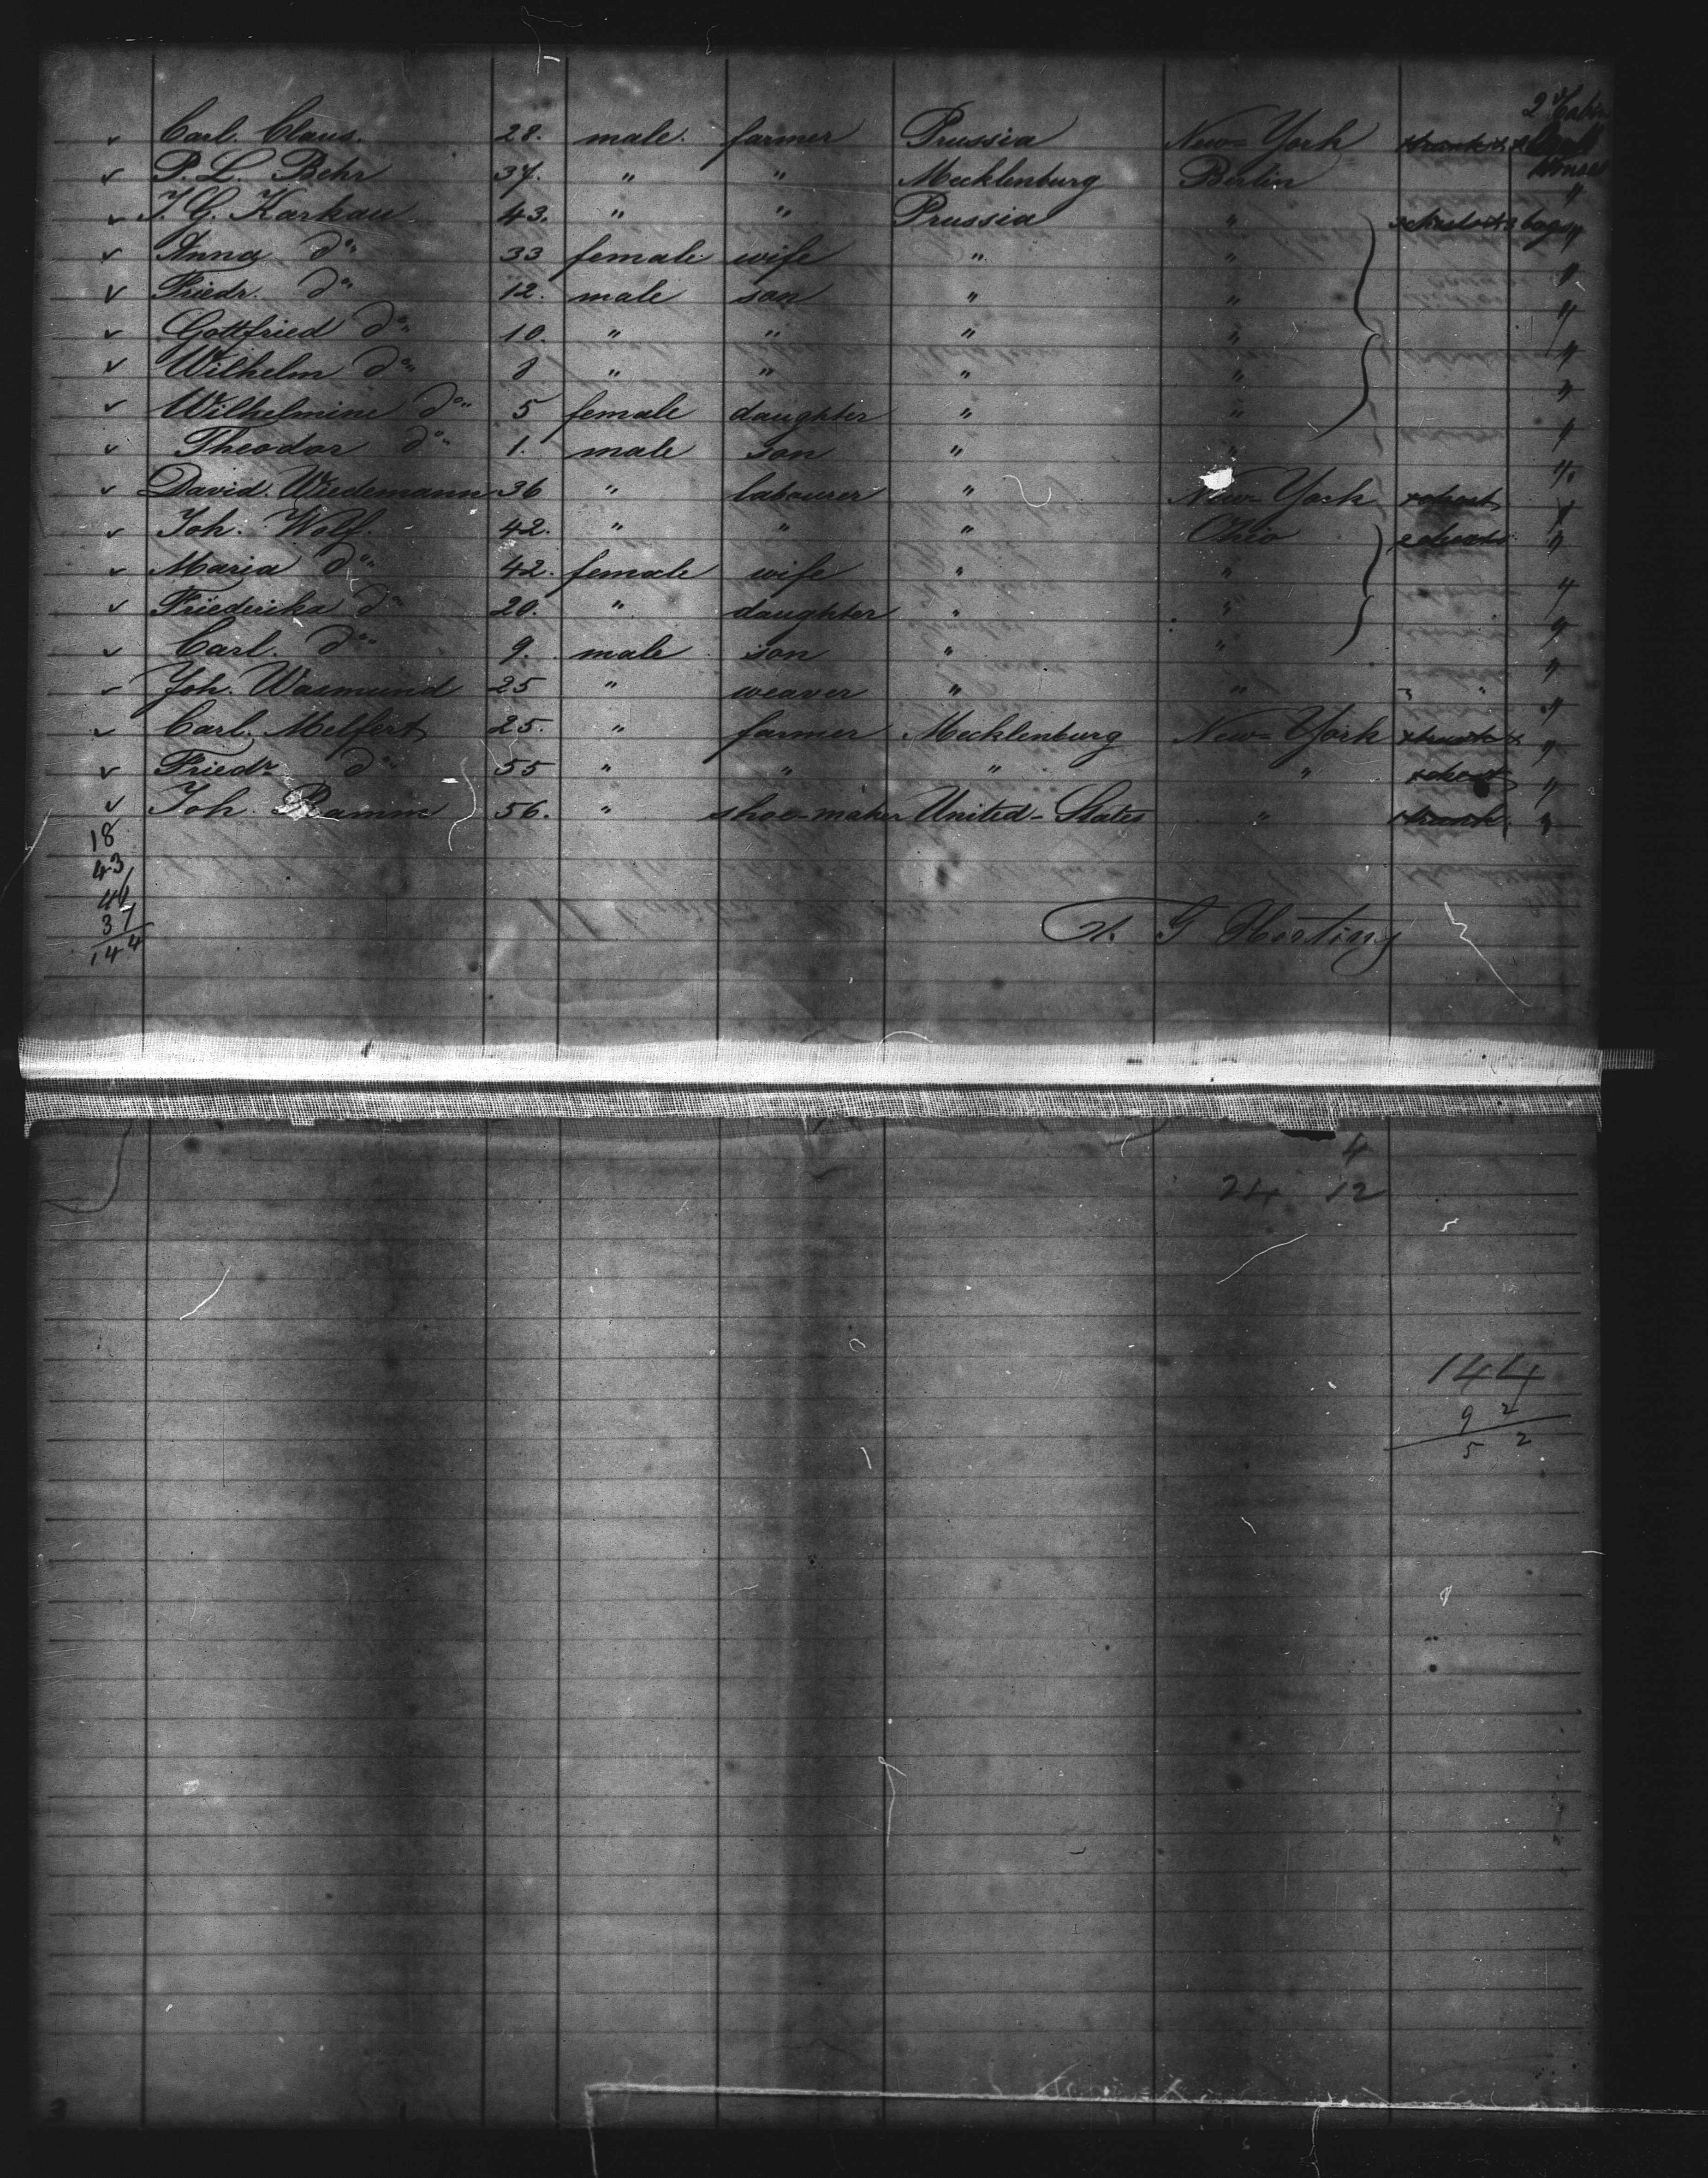 2d Cabin
v Carl. Claus. 28. male. farmer Prussia New-York
v P. L. Behr 37. " " Mecklenburg Berlin "
v J. G. Karkau 43. " " Prussia " bags "
v Anna do 33 female wife " " "
v Friedr. do 12. male son " " "
v Gottfried do 10. " " " " "
v Wilhelm do 8 " " " " "
v Wilhelmine do 5 female daughter " " "
v Theodor do 1. male son " " "
v David. Wiedemann 36 " labourer " New-York chest "
v Joh. Wolf. 42. " " " Ohio "
v Maria do 42. female wife " " "
v Friederika do 20. " daughter " " "
v Carl. do 9. male son " " "
v Joh. Wasmund 25 " weaver " " " " "
v Carl. Melfert 25. " farmer Mecklenburg New-York trunk "
v Friedr do 55 " " " " chest "
v Joh. Ramm 56. " shoe-maker United-States " trunk "
18
43
46
37
144
H. G. Hertting
4
24 12
144
92
52